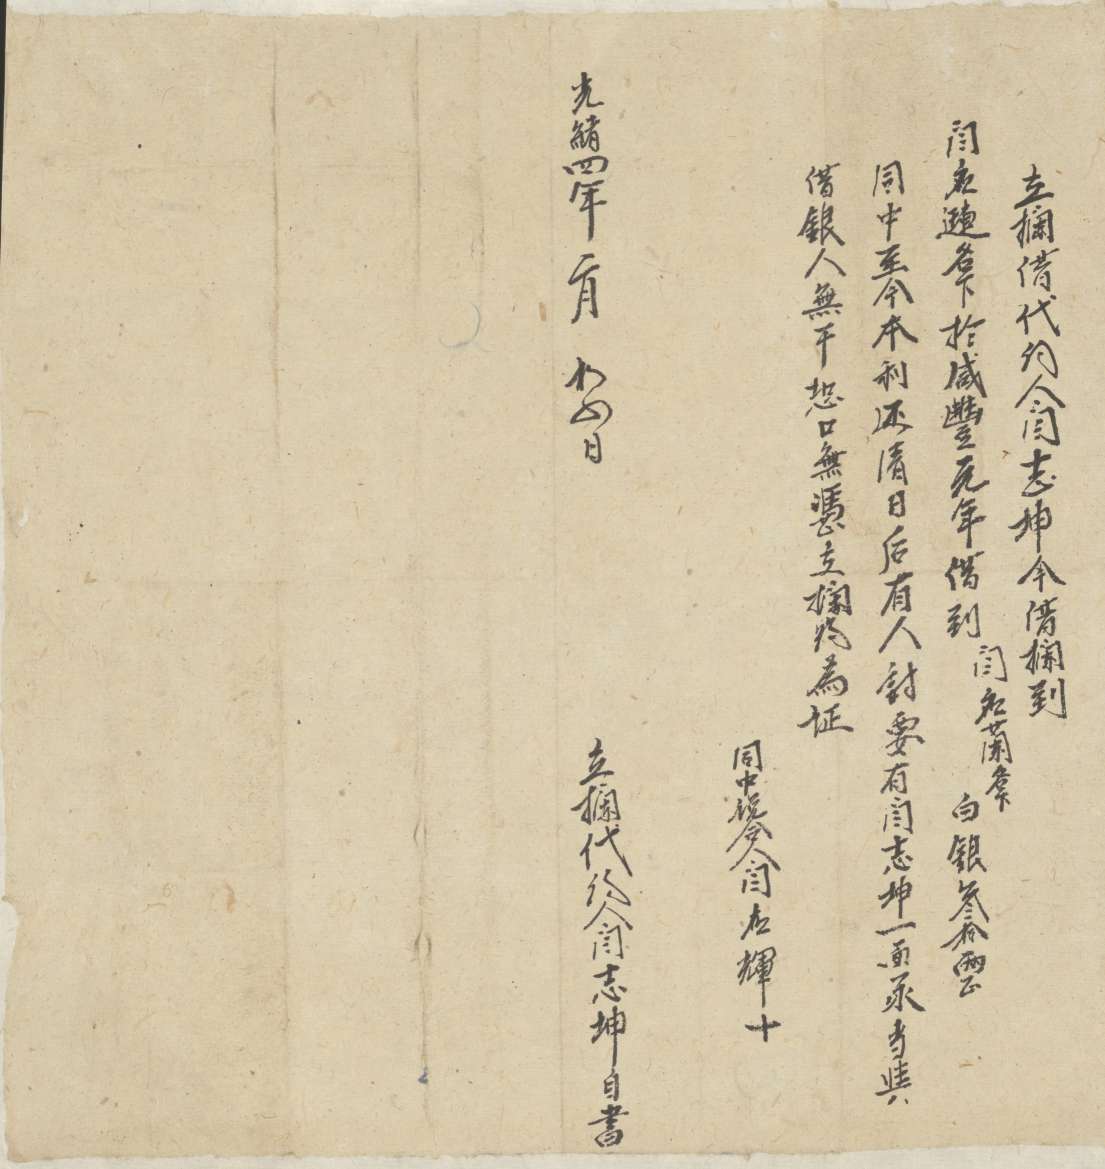 立攔借代約人閆志坤今借攔到
閆君璉名下於咸豐元年借到閆君蘭名下白銀叁拾兩正
同中至今本利还清日后有人討要有閆志坤一面承当與
借銀人無干恐口無憑立攔約為証
同中說合人閆君輝十
光緒四年二月初四日
立攔代約人閆志坤自書